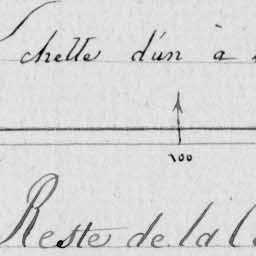 chelle d'un à
100
Reste de la C